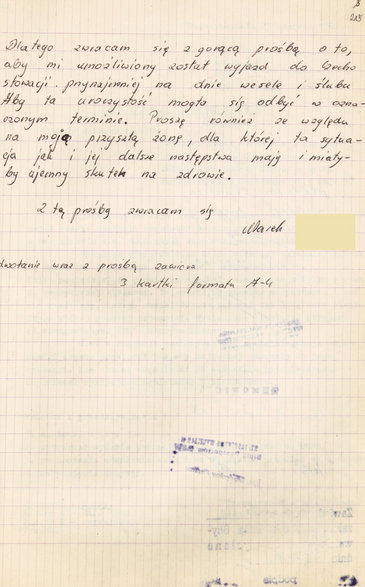 3
Dlatego zwracam się z gorącą prośbą o to,
aby mi umożliwiony został wyjazd do Czecho
słowacji przynajmniej na dnie wesele i ślubu
Aby ta uroczystość mogła się odbyć w ozna-
czonym terminie. Proszę również ze względu
na moją przyszłą żonę, dla której ta sytua-
cja jak i jej dalsze następstwa mają i miały-
by ujemny skutek na zdrowie.
Z tą prośbą zwracam się
Marek
dwołanie wraz z prośbą zawiera
3 kartki formatu A-4